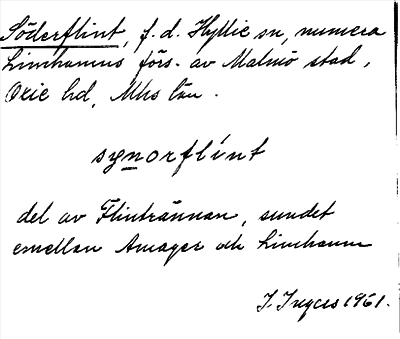 Söderflint, f.d. Hyllie sn, numera
Limhamns förs. av Malmö stad,
Oxie hd, Mhs län.
synorflínt
del av Flintrännan, sundet
emellan Amager och Limhamn
I. Ingers 1961.